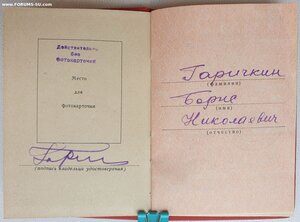 www.FORUMS-SU.com
Действительно
без
фотокарточки
Место
для
фотокарточки
(подпись владельца удостоверения)
Гаричкин
(фамилия)
Борис
(имя)
Николаевич
(отчество)